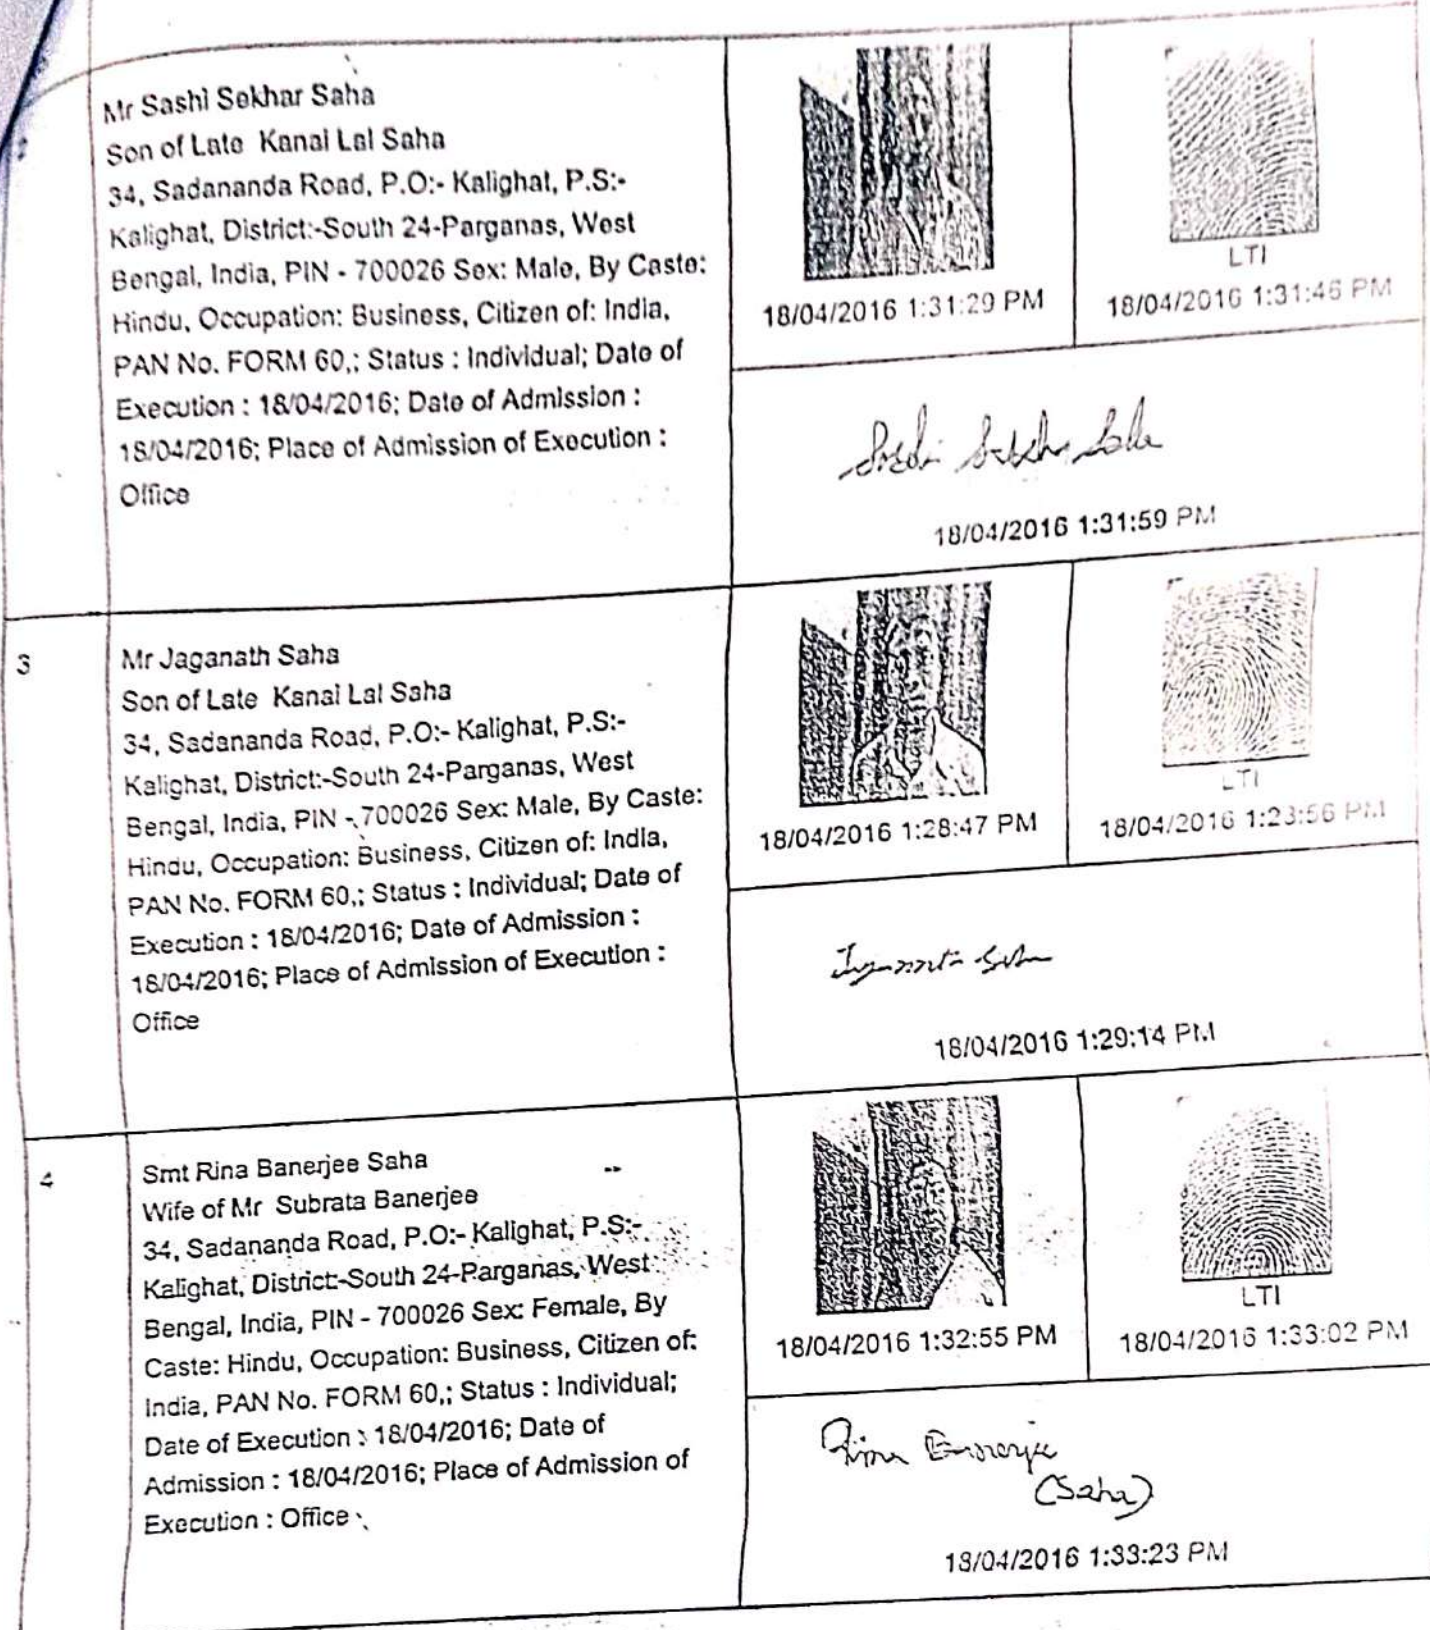 Mr Sashi Sekhar Saha
Son of Late Kanai Lal Saha
34, Sadananda Road, P.O:- Kalighat, P.S:-
Kalighat, District:-South 24-Parganas, West
Bengal, India, PIN - 700026 Sex: Male, By Caste:
Hindu, Occupation: Business, Citizen of: India,
PAN No. FORM 60,; Status : Individual; Date of
Execution : 18/04/2016; Date of Admission :
18/04/2016; Place of Admission of Execution :
Office
18/04/2016 1:31:29 PM
LTI
18/04/2016 1:31:46 PM
Sashi Sekhar Saha
18/04/2016 1:31:59 PM
3
Mr Jaganath Saha
Son of Late Kanai Lal Saha
34, Sadananda Road, P.O:- Kalighat, P.S:-
Kalighat, District:-South 24-Parganas, West
Bengal, India, PIN - 700026 Sex: Male, By Caste:
Hindu, Occupation: Business, Citizen of: India,
PAN No. FORM 60,; Status : Individual; Date of
Execution : 18/04/2016; Date of Admission :
18/04/2016; Place of Admission of Execution :
Office
18/04/2016 1:28:47 PM
LTI
18/04/2016 1:28:56 PM
18/04/2016 1:29:14 PM
4
Smt Rina Banerjee Saha
Wife of Mr Subrata Banerjee
34, Sadananda Road, P.O:- Kalighat, P.S:-
Kalighat, District:-South 24-Parganas, West
Bengal, India, PIN - 700026 Sex: Female, By
Caste: Hindu, Occupation: Business, Citizen of:
India, PAN No. FORM 60,; Status : Individual;
Date of Execution : 18/04/2016; Date of
Admission : 18/04/2016; Place of Admission of
Execution : Office
18/04/2016 1:32:55 PM
LTI
18/04/2016 1:33:02 PM
Rina Banerjee
(Saha)
18/04/2016 1:33:23 PM